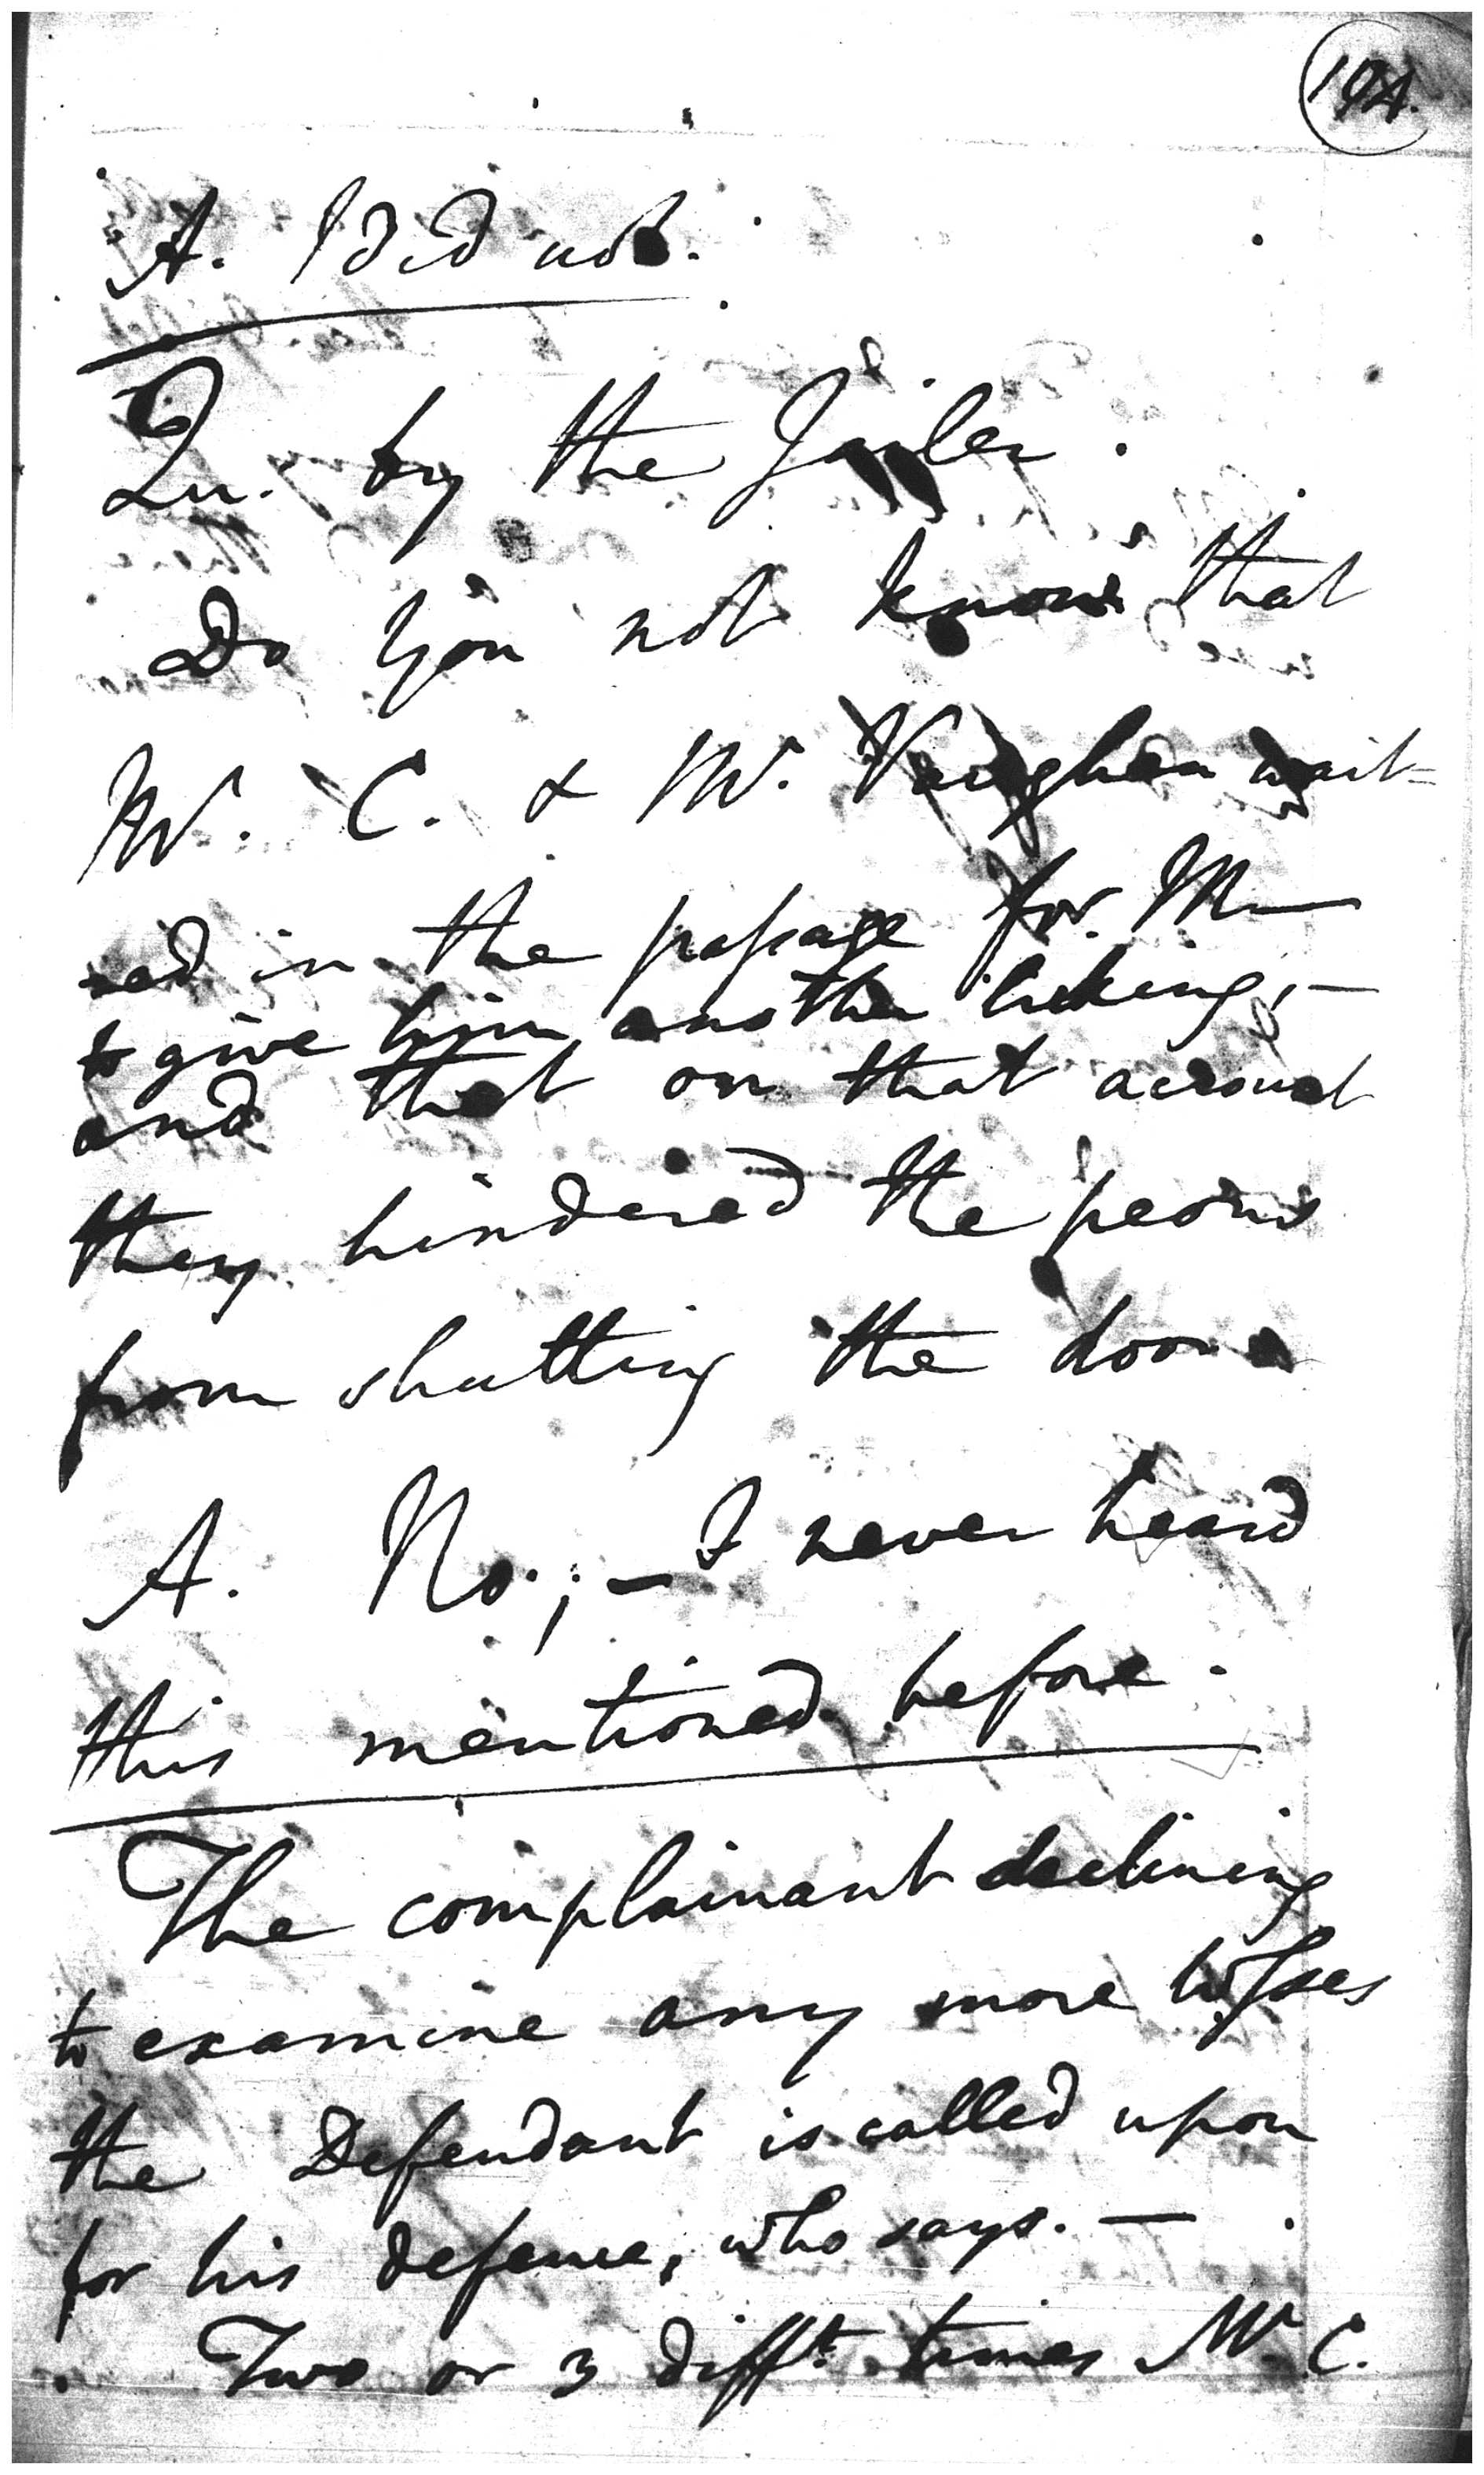 194.
A. I did not.
Qu. by the Jailer.
Do you not know that
Mr. C. & Mr. Vaughan wait-
ed in the passage for M—
to give him another licking, —
and that on that account
they hindered the peons
from shutting the door
A. No; — I never heard
this mentioned before.
The complainant declining
to examine any more
the Defendant is called upon
for his defence, who says. —
Two or 3 difft. times Mr. C.